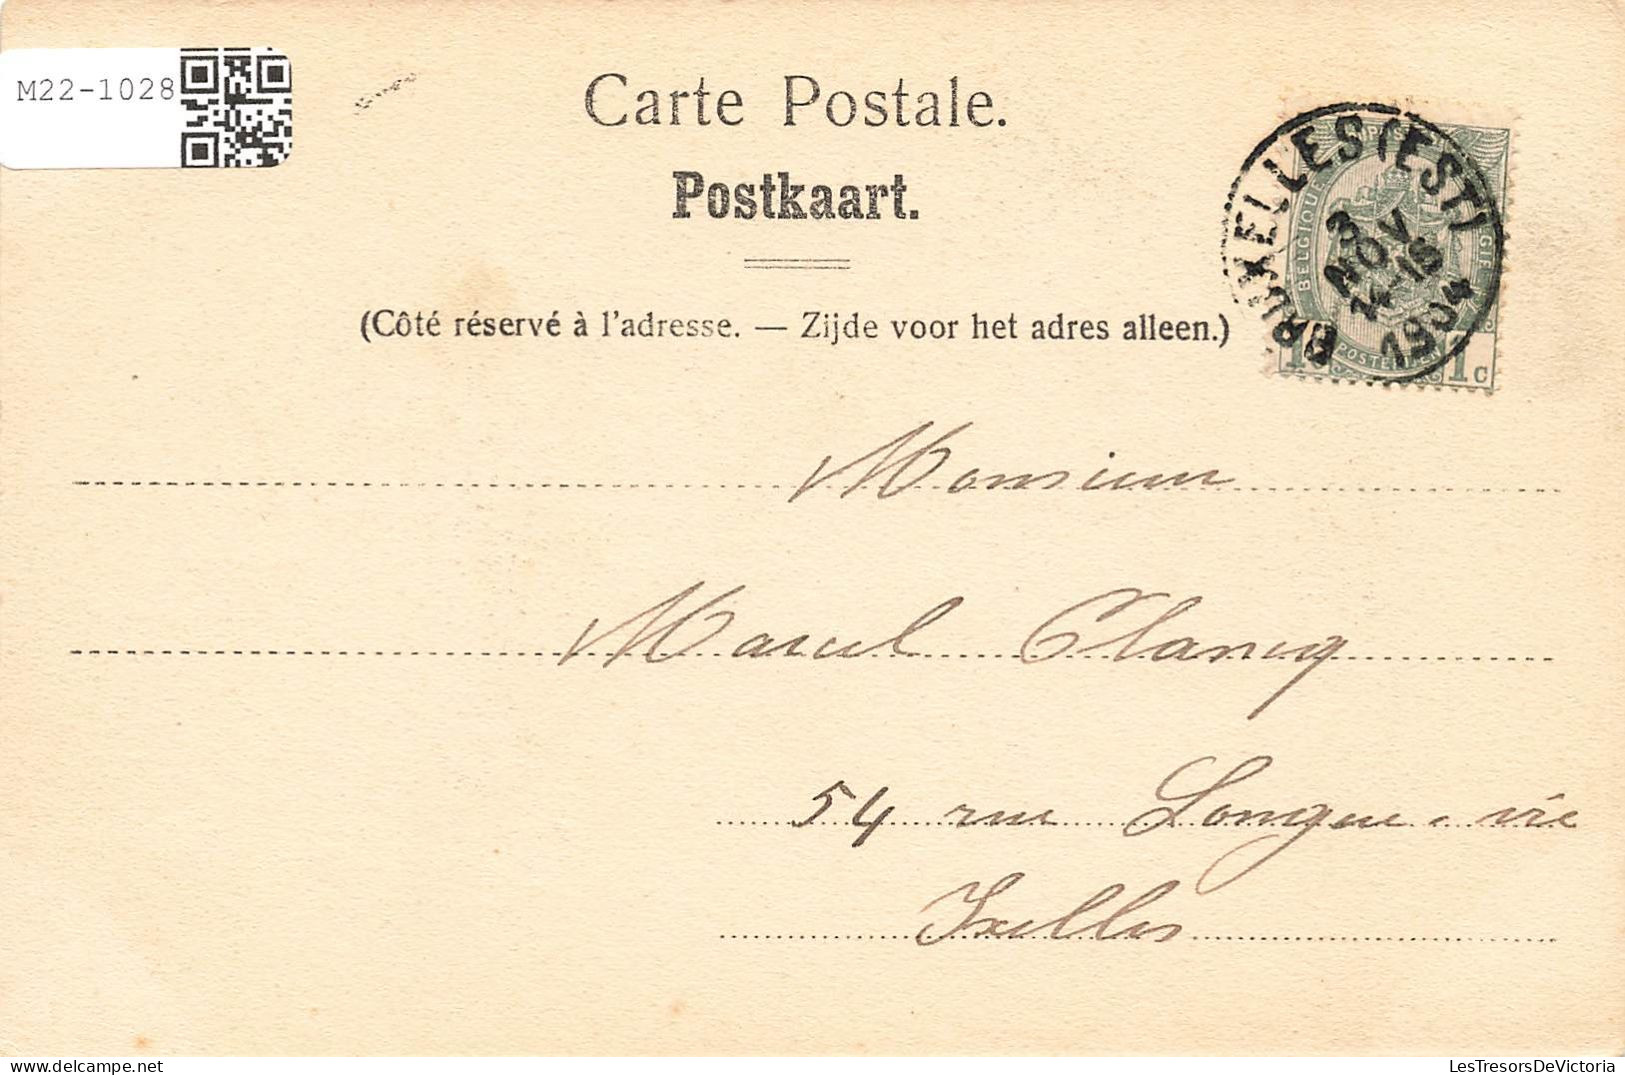 M22-1028
Carte Postale.
Postkaart.
(Côté réservé à l'adresse. — Zijde voor het adres alleen.)
BRUXELLES (EST)
3
NOV
1904
BELGIQUE
1c
Monsieur
Marcel Clancq
54 rue Longue-vie
Ixelles
LesTresorsDeVictoria